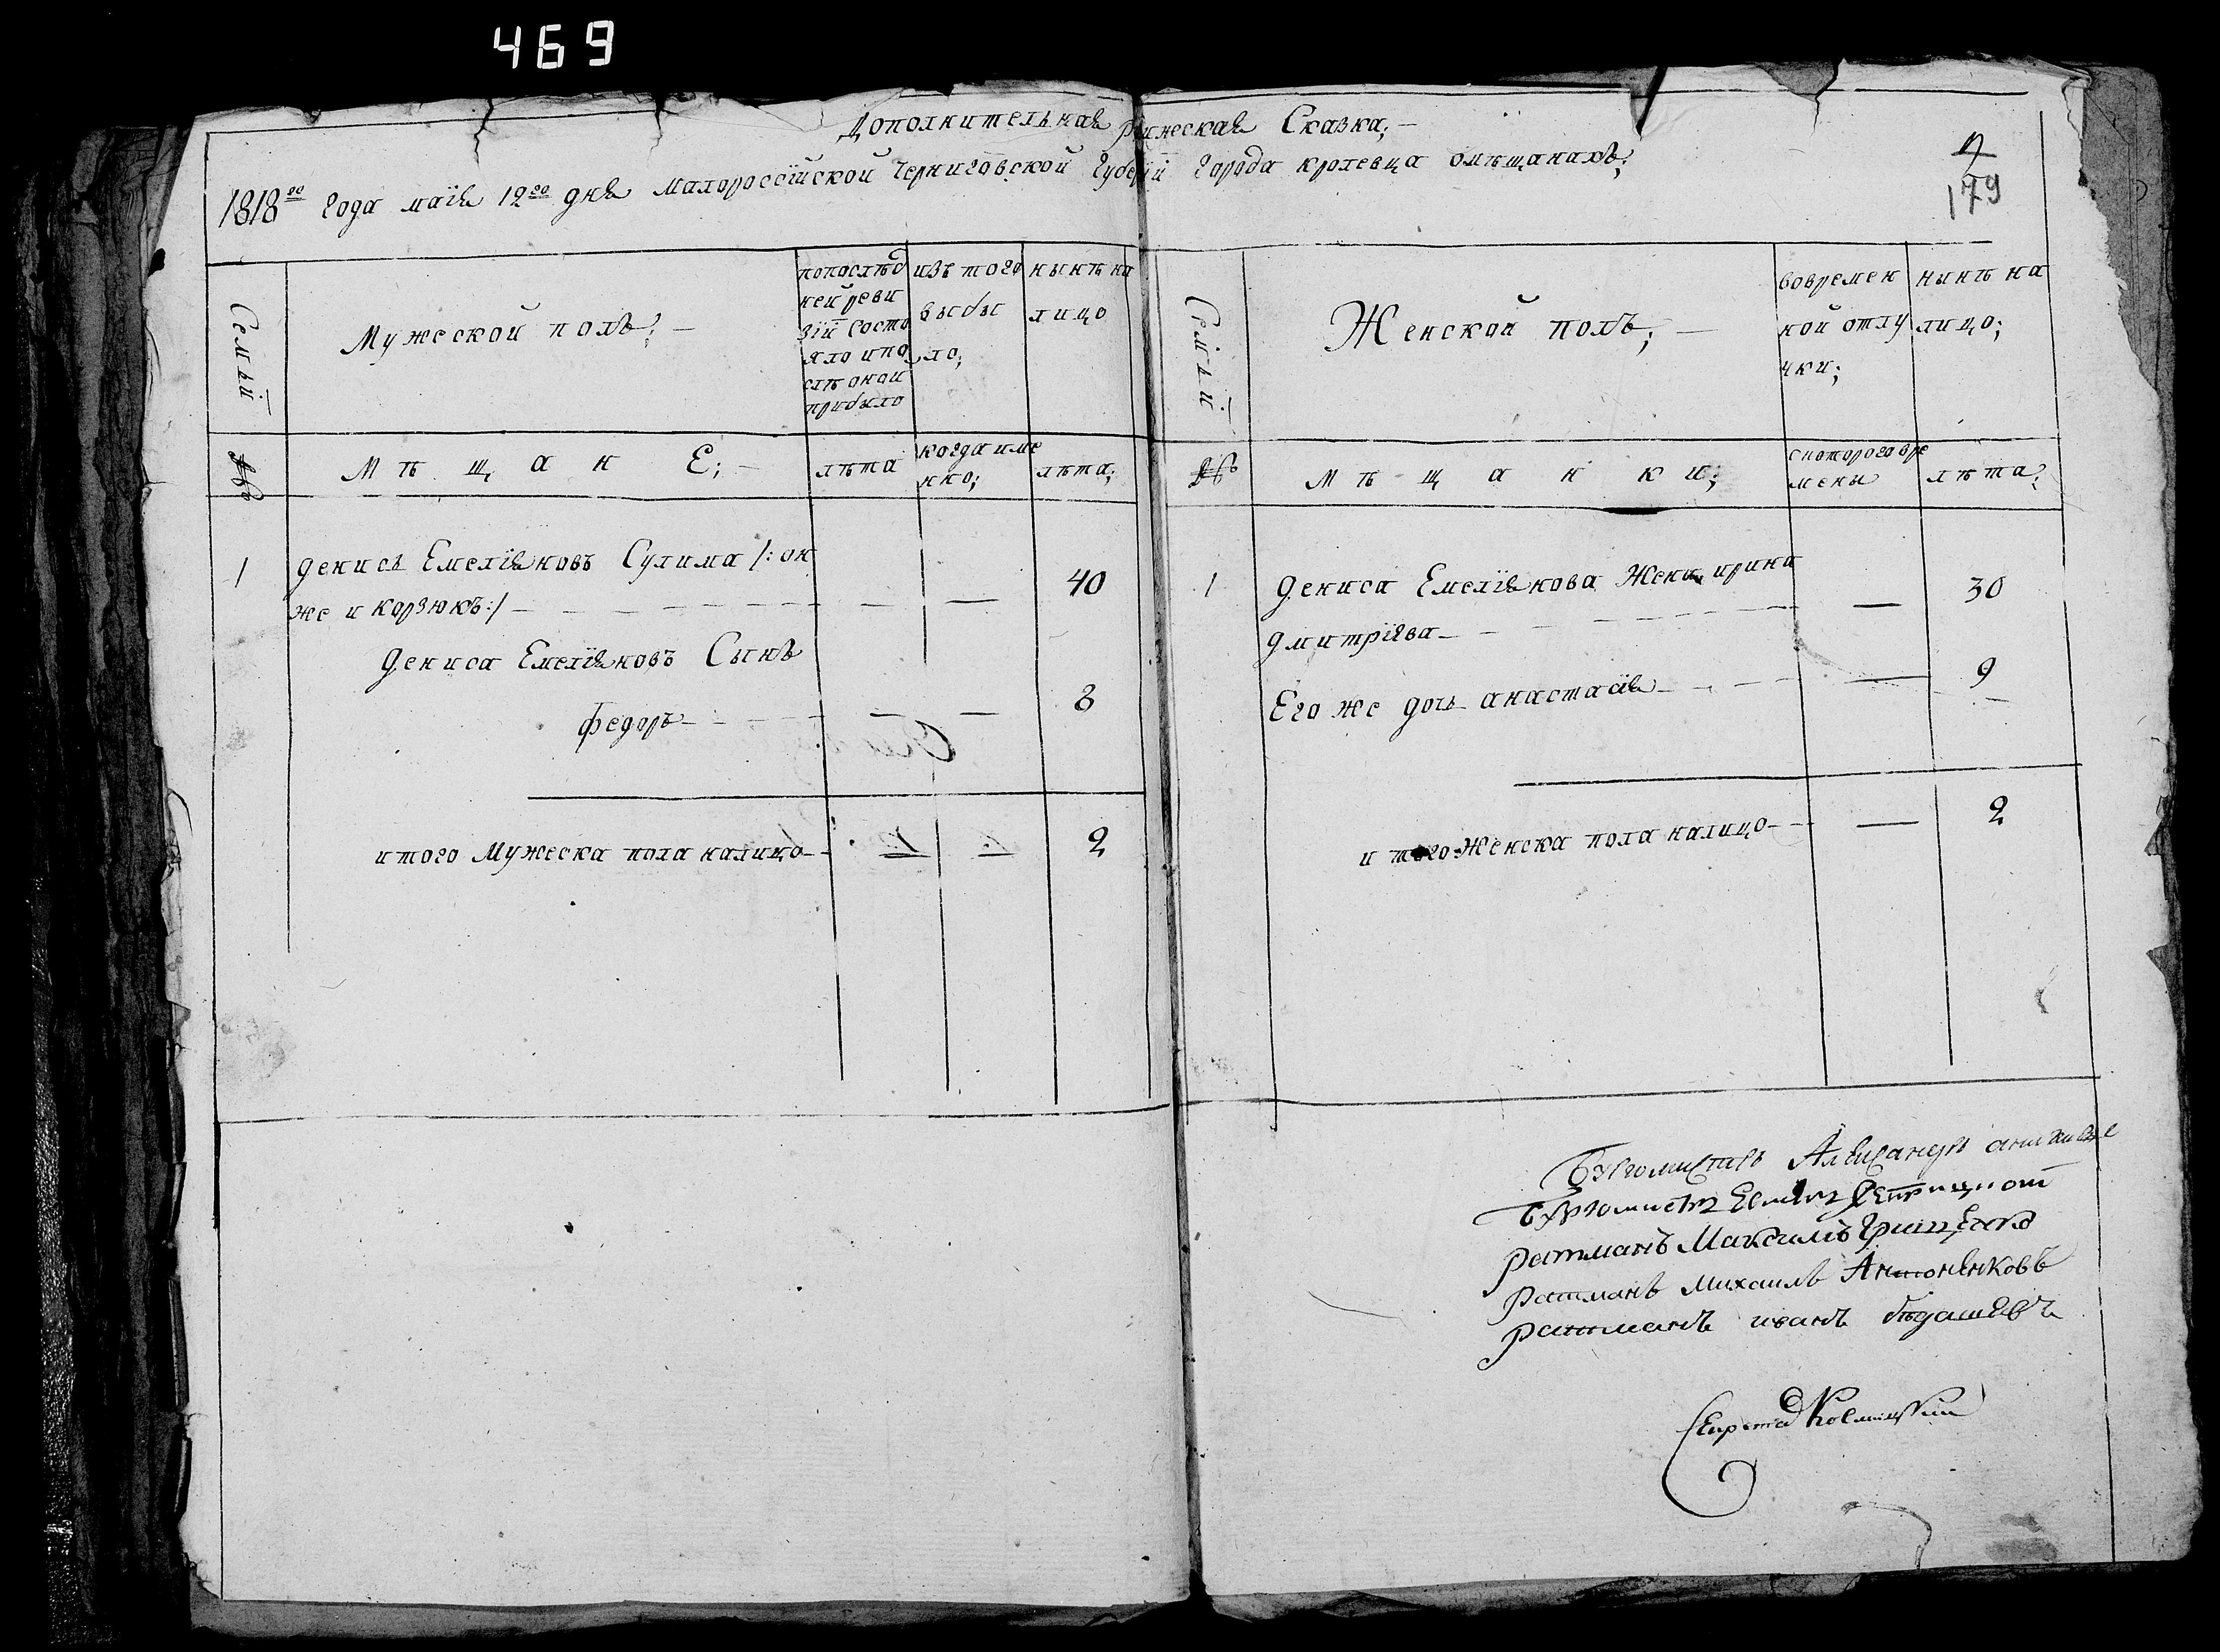 469
Дополнительная Сказка;
1818го года маія 12го дня Малороссійской Черниговской Губерніи города кролевца омѣщанахъ;
179
Семьи
Мужеской полъ;
попослѣд
ней реви
зіи состо
яло ипо
слѣ оной
прибыло
изъ того
выбы
ло;
нынѣ на
лицо
№
Мѣщане;
лѣта
когда име
нно;
лѣта;
1
денисъ Емеліяновъ Сулима /: он
же и корзюкъ:/
40
Дениса Емеліяновъ Сынъ
федоръ
3
итого Мужеска пола налицо
2
Семьи
Женской полъ;
вовремен
ной отлу
чки;
нынѣ на
лицо;
№
Мѣщанки;
скоторого вре
мены
лѣта;
1
Дениса Емеліянова Жена ирина
дмитріева
30
Его же дочь анастасія
9
и того Женска пола налицо
2
Бургомистръ Александръ
Бургомистръ
ратманъ Максимъ Грищенко
Ратманъ Михаилъ Антоненковъ
ратманъ иванъ